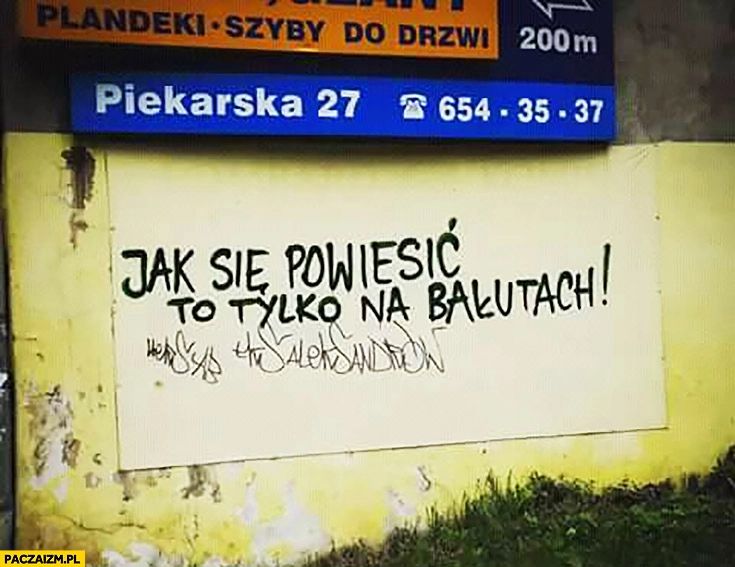 PLANDEKI · SZYBY DO DRZWI
200m
Piekarska 27 ☎ 654 · 35 · 37
JAK SIĘ POWIESIĆ
TO TYLKO NA BAŁUTACH!
ŁKS ALEKSANDRÓW
PACZAIZM.PL